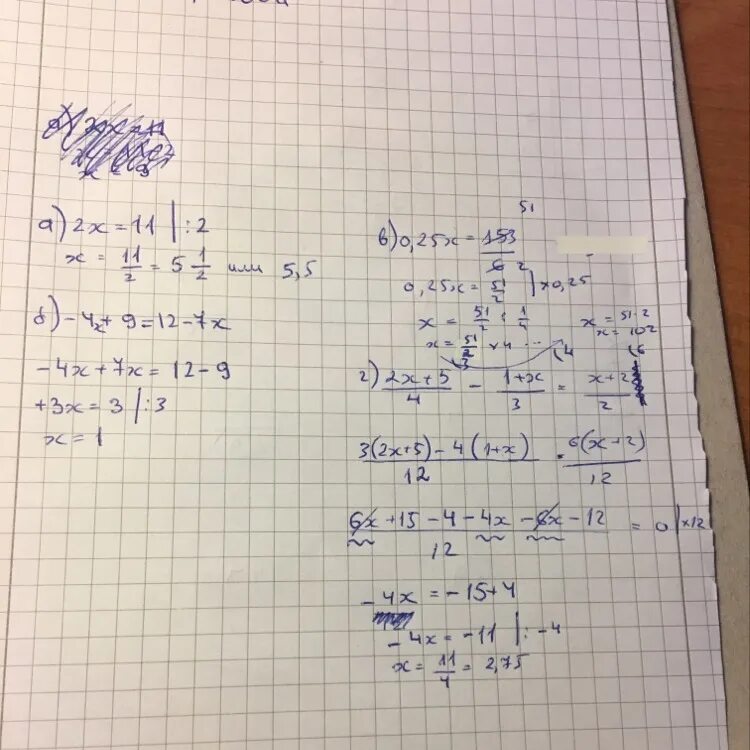 а) 2x = 11 | :2
x = 11/2 = 5 1/2 или 5,5
б) -4x + 9 = 12 - 7x
-4x + 7x = 12 - 9
+3x = 3 | :3
x = 1
51
в) 0,25x = 153/6 2
0,25x = 51/2 | ×0,25
x = 51/2 : 1/4
x = 51/2 × 4 ...
x = 51·2
x = 102
г) 2x+5/4 - 1+x/3 = x+2/2
3(2x+5) - 4(1+x)/12 = 6(x+2)/12
6x + 15 - 4 - 4x - 6x - 12/12 = 0 | ×12
-4x = -15+4
-4x = -11 | : -4
x = 11/4 = 2,75